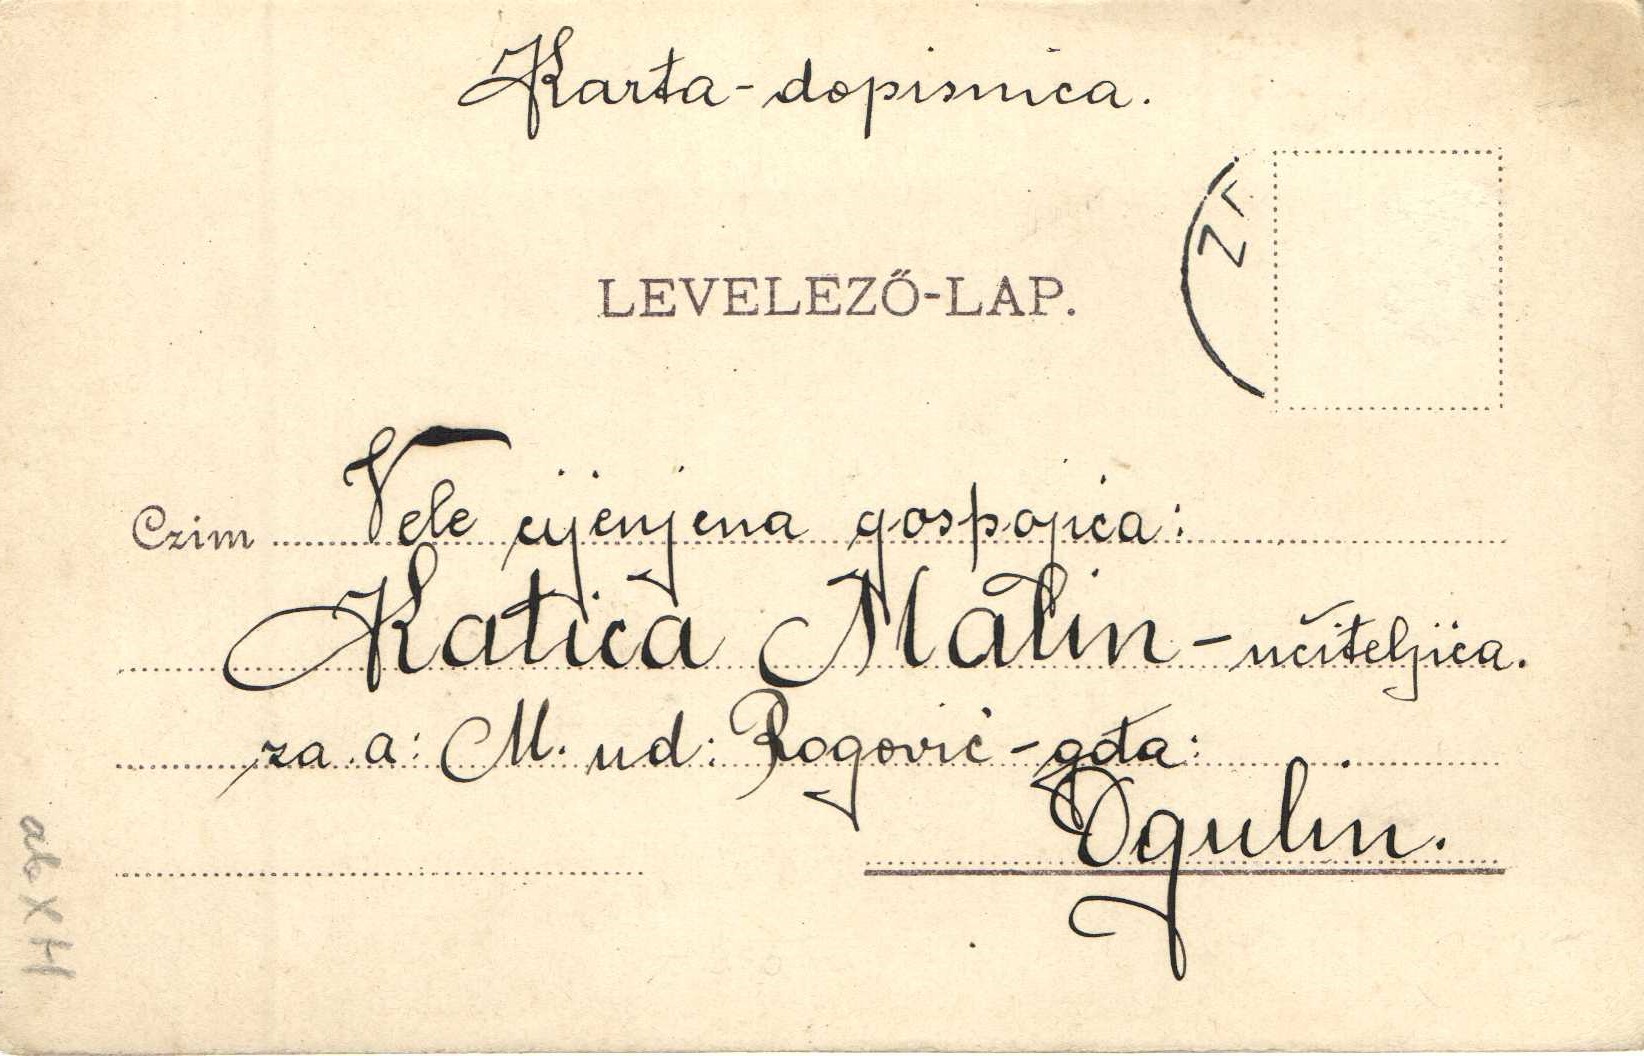 Karta-dopisnica.
LEVELEZŐ-LAP.
Czim Vele cijenjena gospojica:
Katica Malin - učiteljica.
za a: M. ud: Rogović - gđa:
Ogulin.